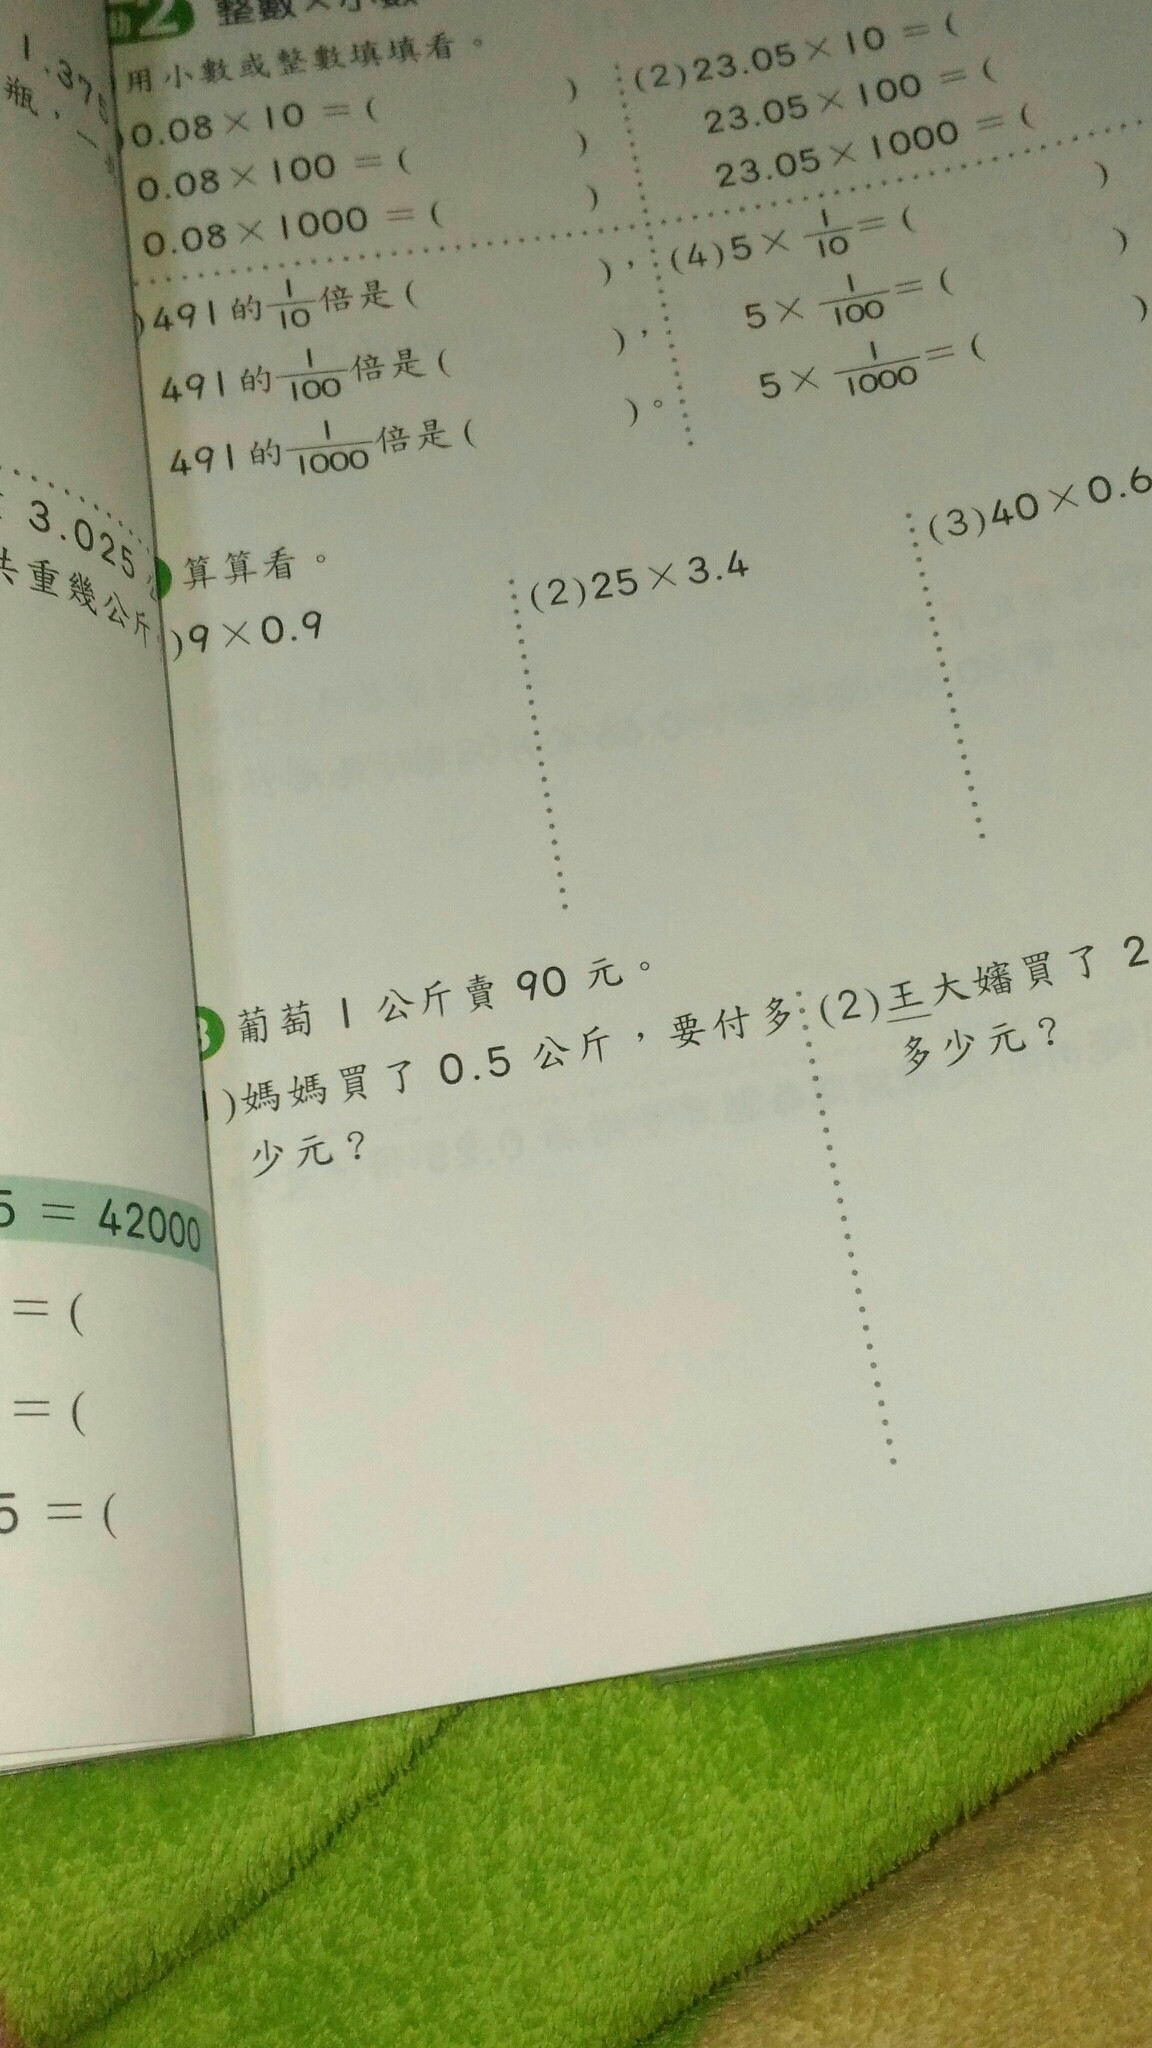 1.375
瓶，一
3.025 公
共重幾公斤
5 = 42000
= (
= (
5 = (
2 整數×小數
用小數或整數填填看。
0.08×10 = ( )
0.08×100 = ( )
0.08×1000 = ( )
(2)23.05×10 = (
23.05×100 = (
23.05×1000 = (
)491的1/10倍是( )，
491的1/100倍是( )，
491的1/1000倍是( )。
(4)5×1/10=( )
5×1/100=( )
5×1/1000=( )
算算看。
)9×0.9
(2)25×3.4
(3)40×0.6
3 葡萄 1 公斤賣 90 元。
1)媽媽買了 0.5 公斤，要付多
少元？
(2)王大嬸買了 2
多少元？